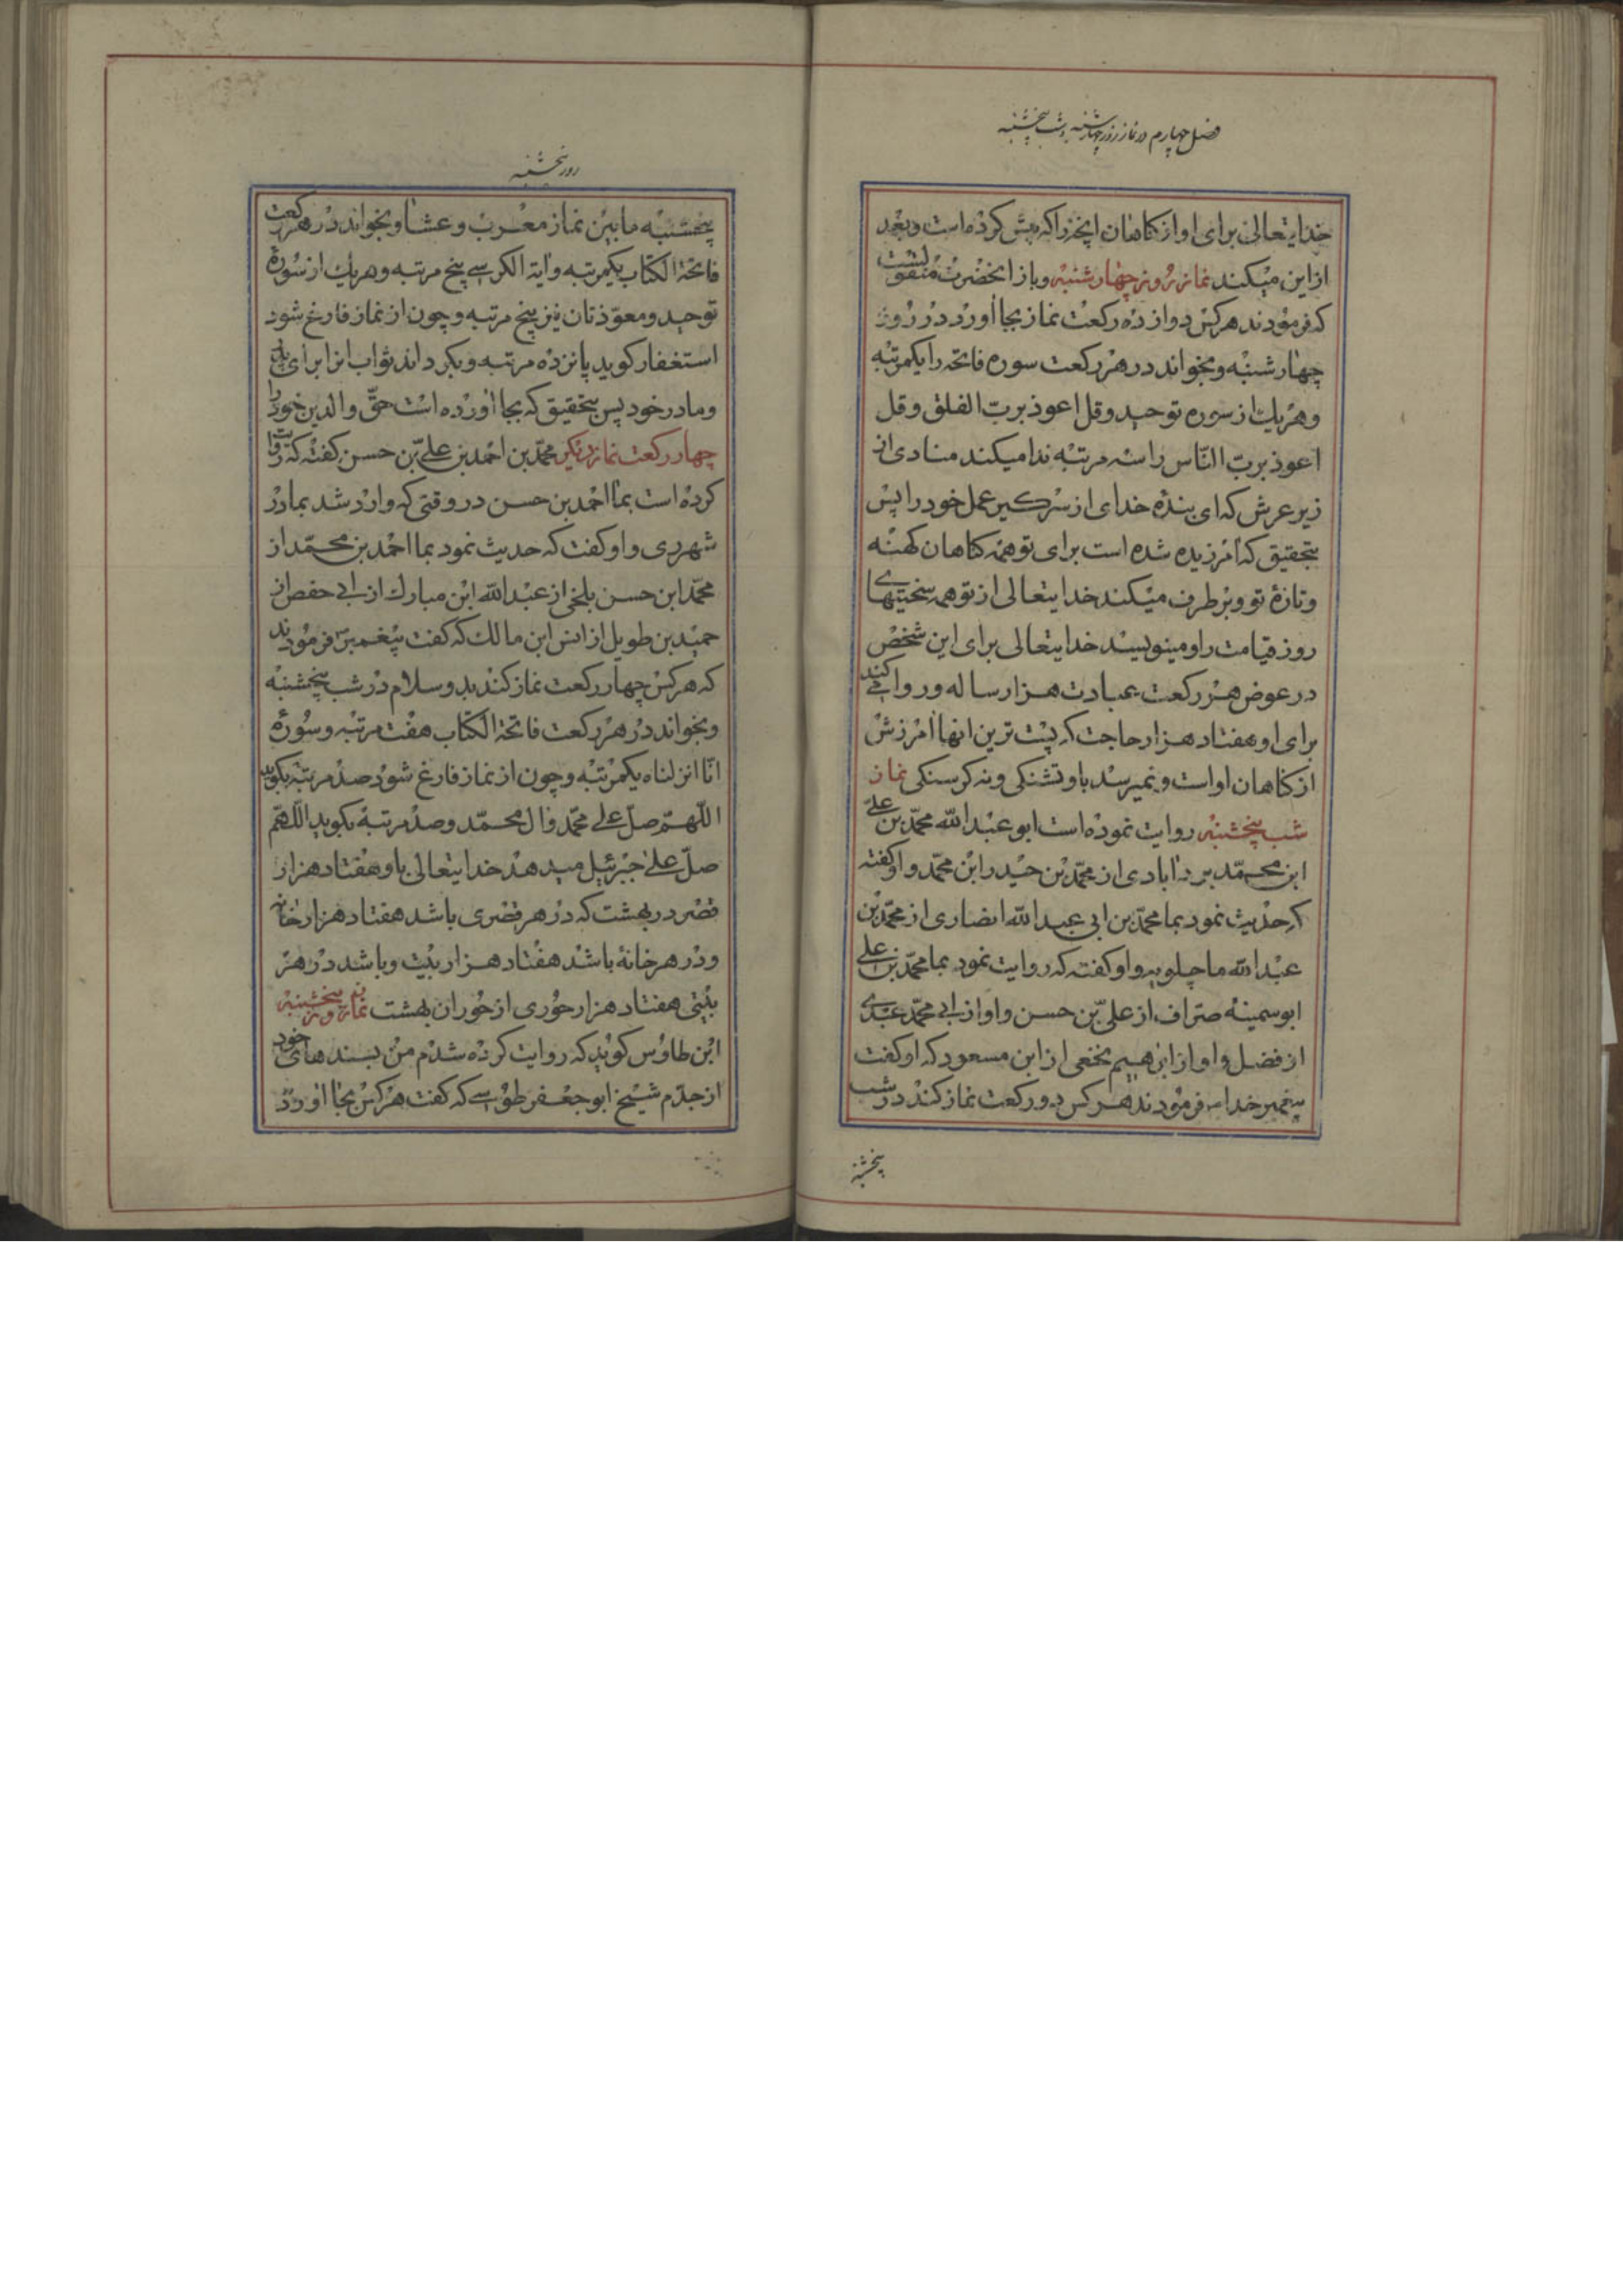 فصل چهارم در نماز روز چهارشنبه و شب پنجشنبه
خدایتعالی برای او از کناهان انچه را که پیش کرده است و بعد
از این میکند نماز روز چهارشنبه و باز از انحضرت منقولست
که فرمودند هر کس دوازده رکعت نماز بجا اورد در روز
چهارشنبه و بخواند در هر رکعت سوره فاتحه را یکمرتبه
و هر یک از سوره توحید و قل اعوذ برب الفلق و قل
اعوذ برب النّاس را سه مرتبه ندا میکند منادی از
زیر عرش که ای بندهٔ خدای از سر کیر عمل خود را پس
بتحقیق که امرزیده شده است برای تو همه کناهان کهنه
و تازهٔ تو و بر طرف میکند خدایتعالی از تو همه سختیهای
روز قیامت را و مینویسد خدایتعالی برای این شخص
در عوض هر رکعت عبادت هزار ساله و روا می کند
برای او هفتاد هزار حاجت که پست ترین انها امرزش
از کناهان او است و نمیرسد باو تشنکی و نه کرسنکی نماز
شب پنجشنبه روایت نموده است ابو عبد الله محمّد بن علی
ابن محمّد یرداابادی از محمّد بن حیدر ابن محمّد و او کفته
که حدیث نمود بما محمّد بن ابی عبد الله انصاری از محمّد بن
عبد الله ماجلویه و او کفته که روایت نمود بما محمّد بن علی
ابو سمینه صرّاف از علیّ بن حسن و او از ابی محمّد عبدی
از فضل و او از ابرهیم نخعی از ابن مسعود که او کفت
پیغمبر خدا ص فرمودند هر کس دو رکعت نماز کند در شب
پنجشنبه
روز پنجشنبه
پنجشنبه مابین نماز مغرب و عشا و بخواند در هر رکعت
فاتحة الکتاب یکمرتبه و ایة الکرسی پنج مرتبه و هر یک از سورهٔ
توحید و معوّذتان نیز پنج مرتبه و چون از نماز فارغ شود
استغفار کوید پانزده مرتبه و بکرداند ثواب انرا برای پدر
و مادر خود پس بتحقیق که بجا اورده است حقّ والدین خود را
چهار رکعت نماز دیکر محمّد بن احمد بن علیّ بن حسن کفته که روایت
کرده است بما احمد بن حسن در وقتی که وارد شد بما در
شهر ری و او کفت که حدیث نمود بما احمد بن محمّد از
محمّد ابن حسن بلخی از عبد الله ابن مبارک از ابی حفص از
حمید بن طویل از انس ابن مالک که کفت پیغمبر ص فرمودند
که هر کس چهار رکعت نماز کند بدو سلام در شب پنجشنبه
و بخواند در هر رکعت فاتحة الکتاب هفت مرتبه و سورهٔ
انّا انزلناه یکمرتبه و چون از نماز فارغ شود صد مرتبه بکوید
اللّهمّ صلّ علی محمّد و ال محمّد و صد مرتبه بکوید اللّهمّ
صلّ علی جبرئیل میدهد خدایتعالی باو هفتاد هزار
قصر در بهشت که در هر قصری باشد هفتاد هزار خانه
و در هر خانهٔ باشد هفتاد هزار بیت و باشد در هر
بیتی هفتاد هزار حوری از حوران بهشت نماز روز پنجشنبه
ابن طاوس کوید که روایت کرده شدم من بسندهای خود
از جدّم شیخ ابو جعفر طوسی که کفت هر کس بجا اورد